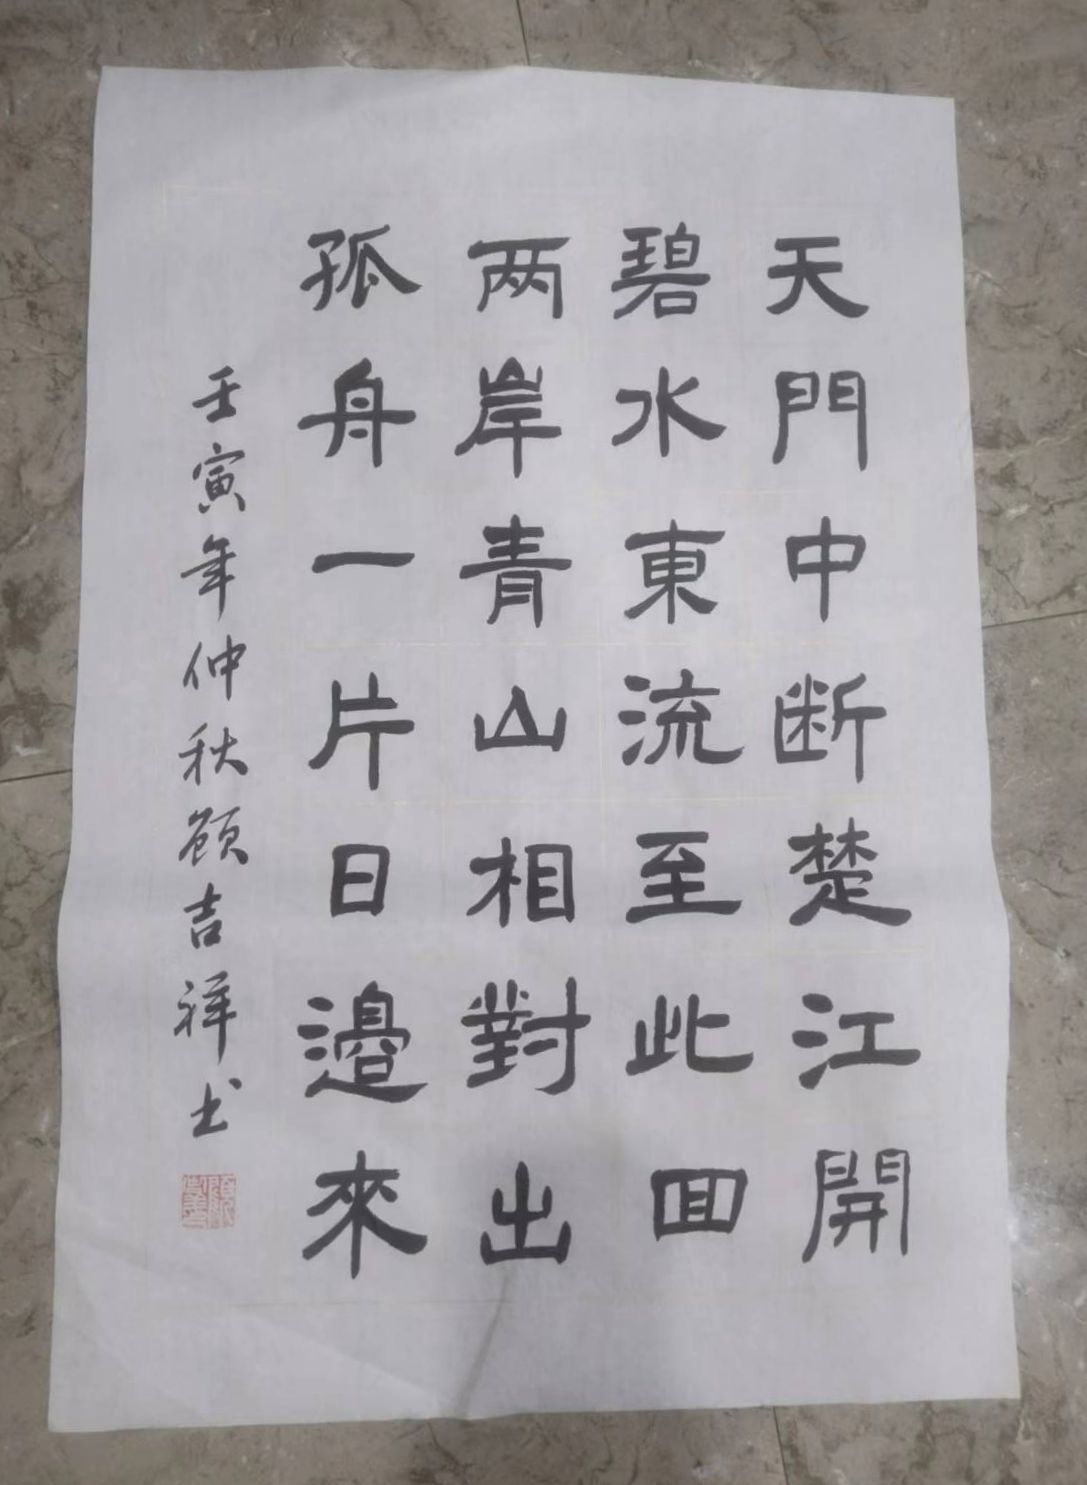 天門中断楚江開
碧水東流至此回
两岸青山相對出
孤舟一片日邉來
壬寅年仲秋顾吉祥书